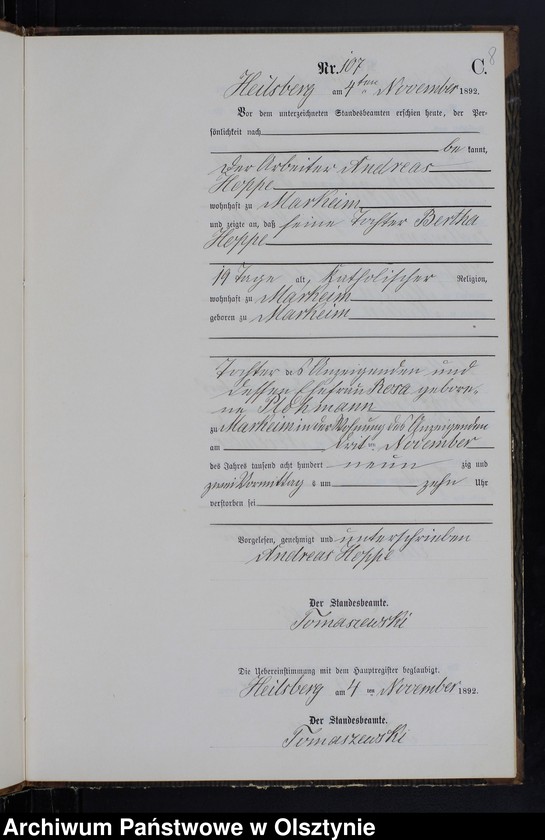 8
Nr. 107 C.
Heilsberg am 4ten November 1892.
Vor dem unterzeichneten Standesbeamten erschien heute, der Per-
sönlichkeit nach
be kannt,
der Arbeiter Andreas
Hoppe
wohnhaft zu Markeim
und zeigte an, daß seine Tochter Bertha
Hoppe
19 Tage alt, katholischer Religion,
wohnhaft zu Markeim
geboren zu Markeim
Tochter des Anzeigenden und
dessen Ehefrau Rosa gebore-
ne
zu Markeim in der Wohnung des Anzeigenden
am November
des Jahres tausend acht hundert neun zig und
zwei Vormittag s um zehn Uhr
verstorben sei
Vorgelesen, genehmigt und unterschrieben
Andreas Hoppe
Der Standesbeamte.
Tomaszewski
Die Uebereinstimmung mit dem Hauptregister beglaubigt.
Heilsberg am 4 ten November 1892.
Der Standesbeamte.
Tomaszewski
Archiwum Państwowe w Olsztynie